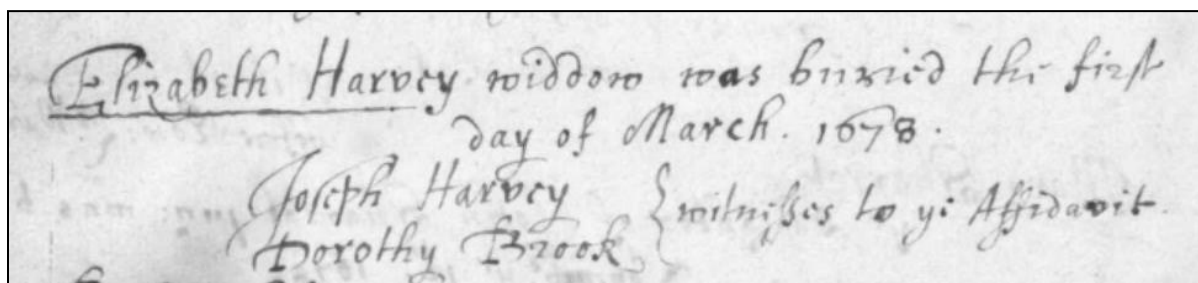 Elizabeth Harvey widdow was buried the first
day of March. 1678.
Joseph Harvey
Dorothy Brook } witnesses to ye Affidavit.